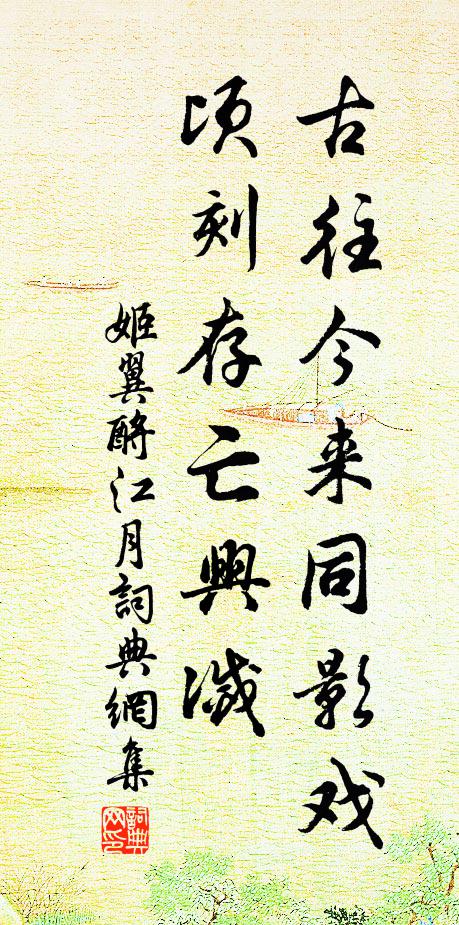 古往今来同影戏
顷刻存亡興滅
姬翼酹江月詞典網集
詞典
网印